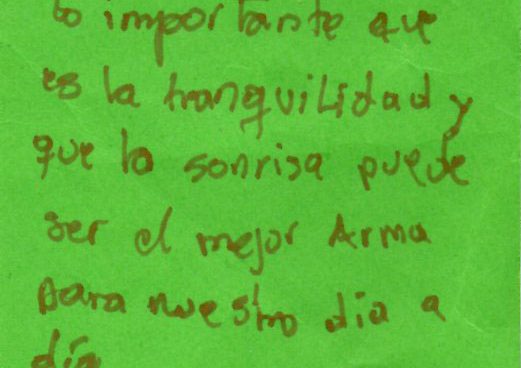 lo importante que
es la tranquilidad y
que la sonrisa puede
ser el mejor Arma
para nuestro dia a
día